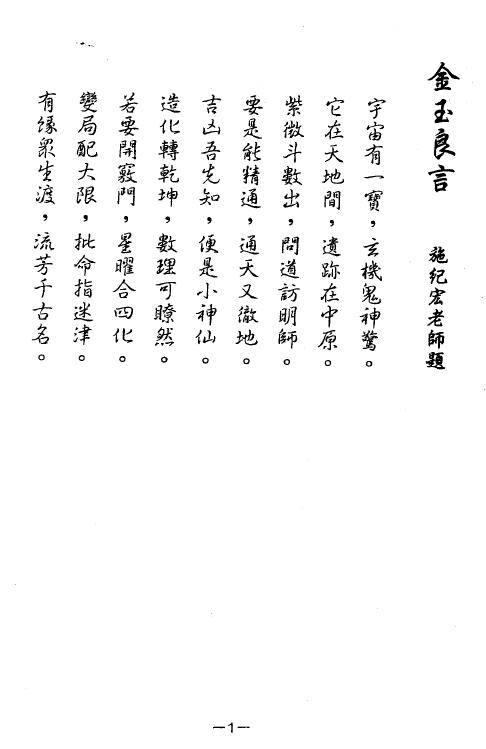 金玉良言
施纪宏老師題
宇宙有一寶，玄機鬼神驚。
它在天地間，遺跡在中原。
紫微斗數出，問道訪明師。
要是能精通，通天又徹地。
吉凶吾先知，便是小神仙。
造化轉乾坤，數理可瞭然。
若要開竅門，星曜合四化。
變局配大限，批命指迷津。
有緣眾生渡，流芳千古名。
—1—